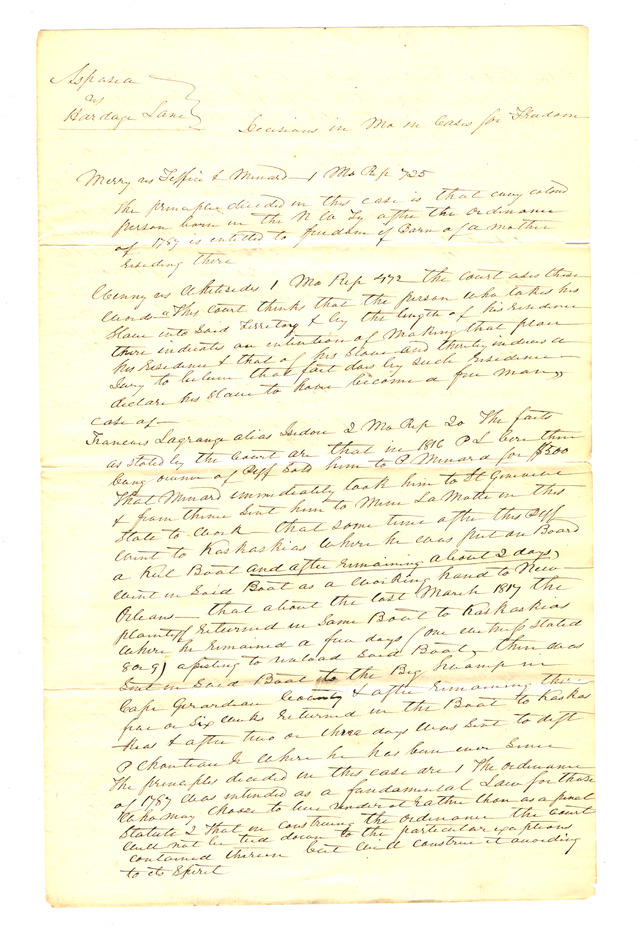 Aspasia
vs
Hardage Lane
Decisions in Mo in Cases for Freedom
Merry vs Tiffin & Menard 1 Mo Rep 725
The principle decided in this case is that any colord
person born in the N W Ty after the Ordinance
of 1787 is entitled to freedom if born of a mother
residing there
Winny vs Whitesides 1 Mo Rep 472 the court uses these
words "This Court thinks that the person who takes his
Slave into Said Territory & by the length of his residence
there indicates an intention of making that place
his residence & that of his Slave and thereby induces a
Jury to believe that fact does by such residence
declare his Slave to have become a free man"
case of
Francois Lagrange alias Isidore 2 Mo Rep 20 The facts
as stated by the Court are that in 1816 P L here then
being owner of Plff Sold him to P Menard for $500
That Menard immediately took him to St Genevieve
& from thence Sent him to Mine La Motte in this
State to work that some time after this Plff
went to Kaskaskias where he was put on Board
a Keel Boat and after remaining about 2 days,
went in Said Boat as a working hand to New
Orleans that about the last March 1817 the
plaintiff returned in Same Boat to Kaskaskias
where he remained a few days (one witness stated
8 or 9) assisting to unload Said Boat, then was
Sent in Said Boat to the Big Swamp in
Cape Gerardeau County & after remaining there
five or Six weeks returned in the Boat to Kaskas
kias & after two or three days was Sent to deft
P Chouteau Jr where he has been ever Since
The principles decided in this case are 1 The ordinance
of 1787 was intended as a fundamental Law for those
who may choose to live under it rather than as a penal
Statute 2 That in construing the Ordinance the Court
will not be tied down to the particular exceptions
contained therein but will construe it according
to its Spirit